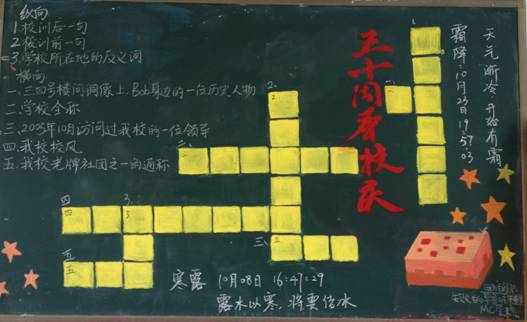 纵向
1.校训后一句
2.校训前一句
3.学校所在地的反义词
横向
一.三四号楼间铜像上,Bob身边的一位历史人物
二.学校全称
三.2005年10月访问过我校的一位领导
四.我校校风
五.我校老牌社团之一的通称
五十周春校庆
霜降:10月23日19 57 03
天气渐冷 开始有霜
1.
一
2.
2
二.
三
三
四
四
3.
3
五
五
寒露 10月08日 16:47:29
露水以寒,将要结冰